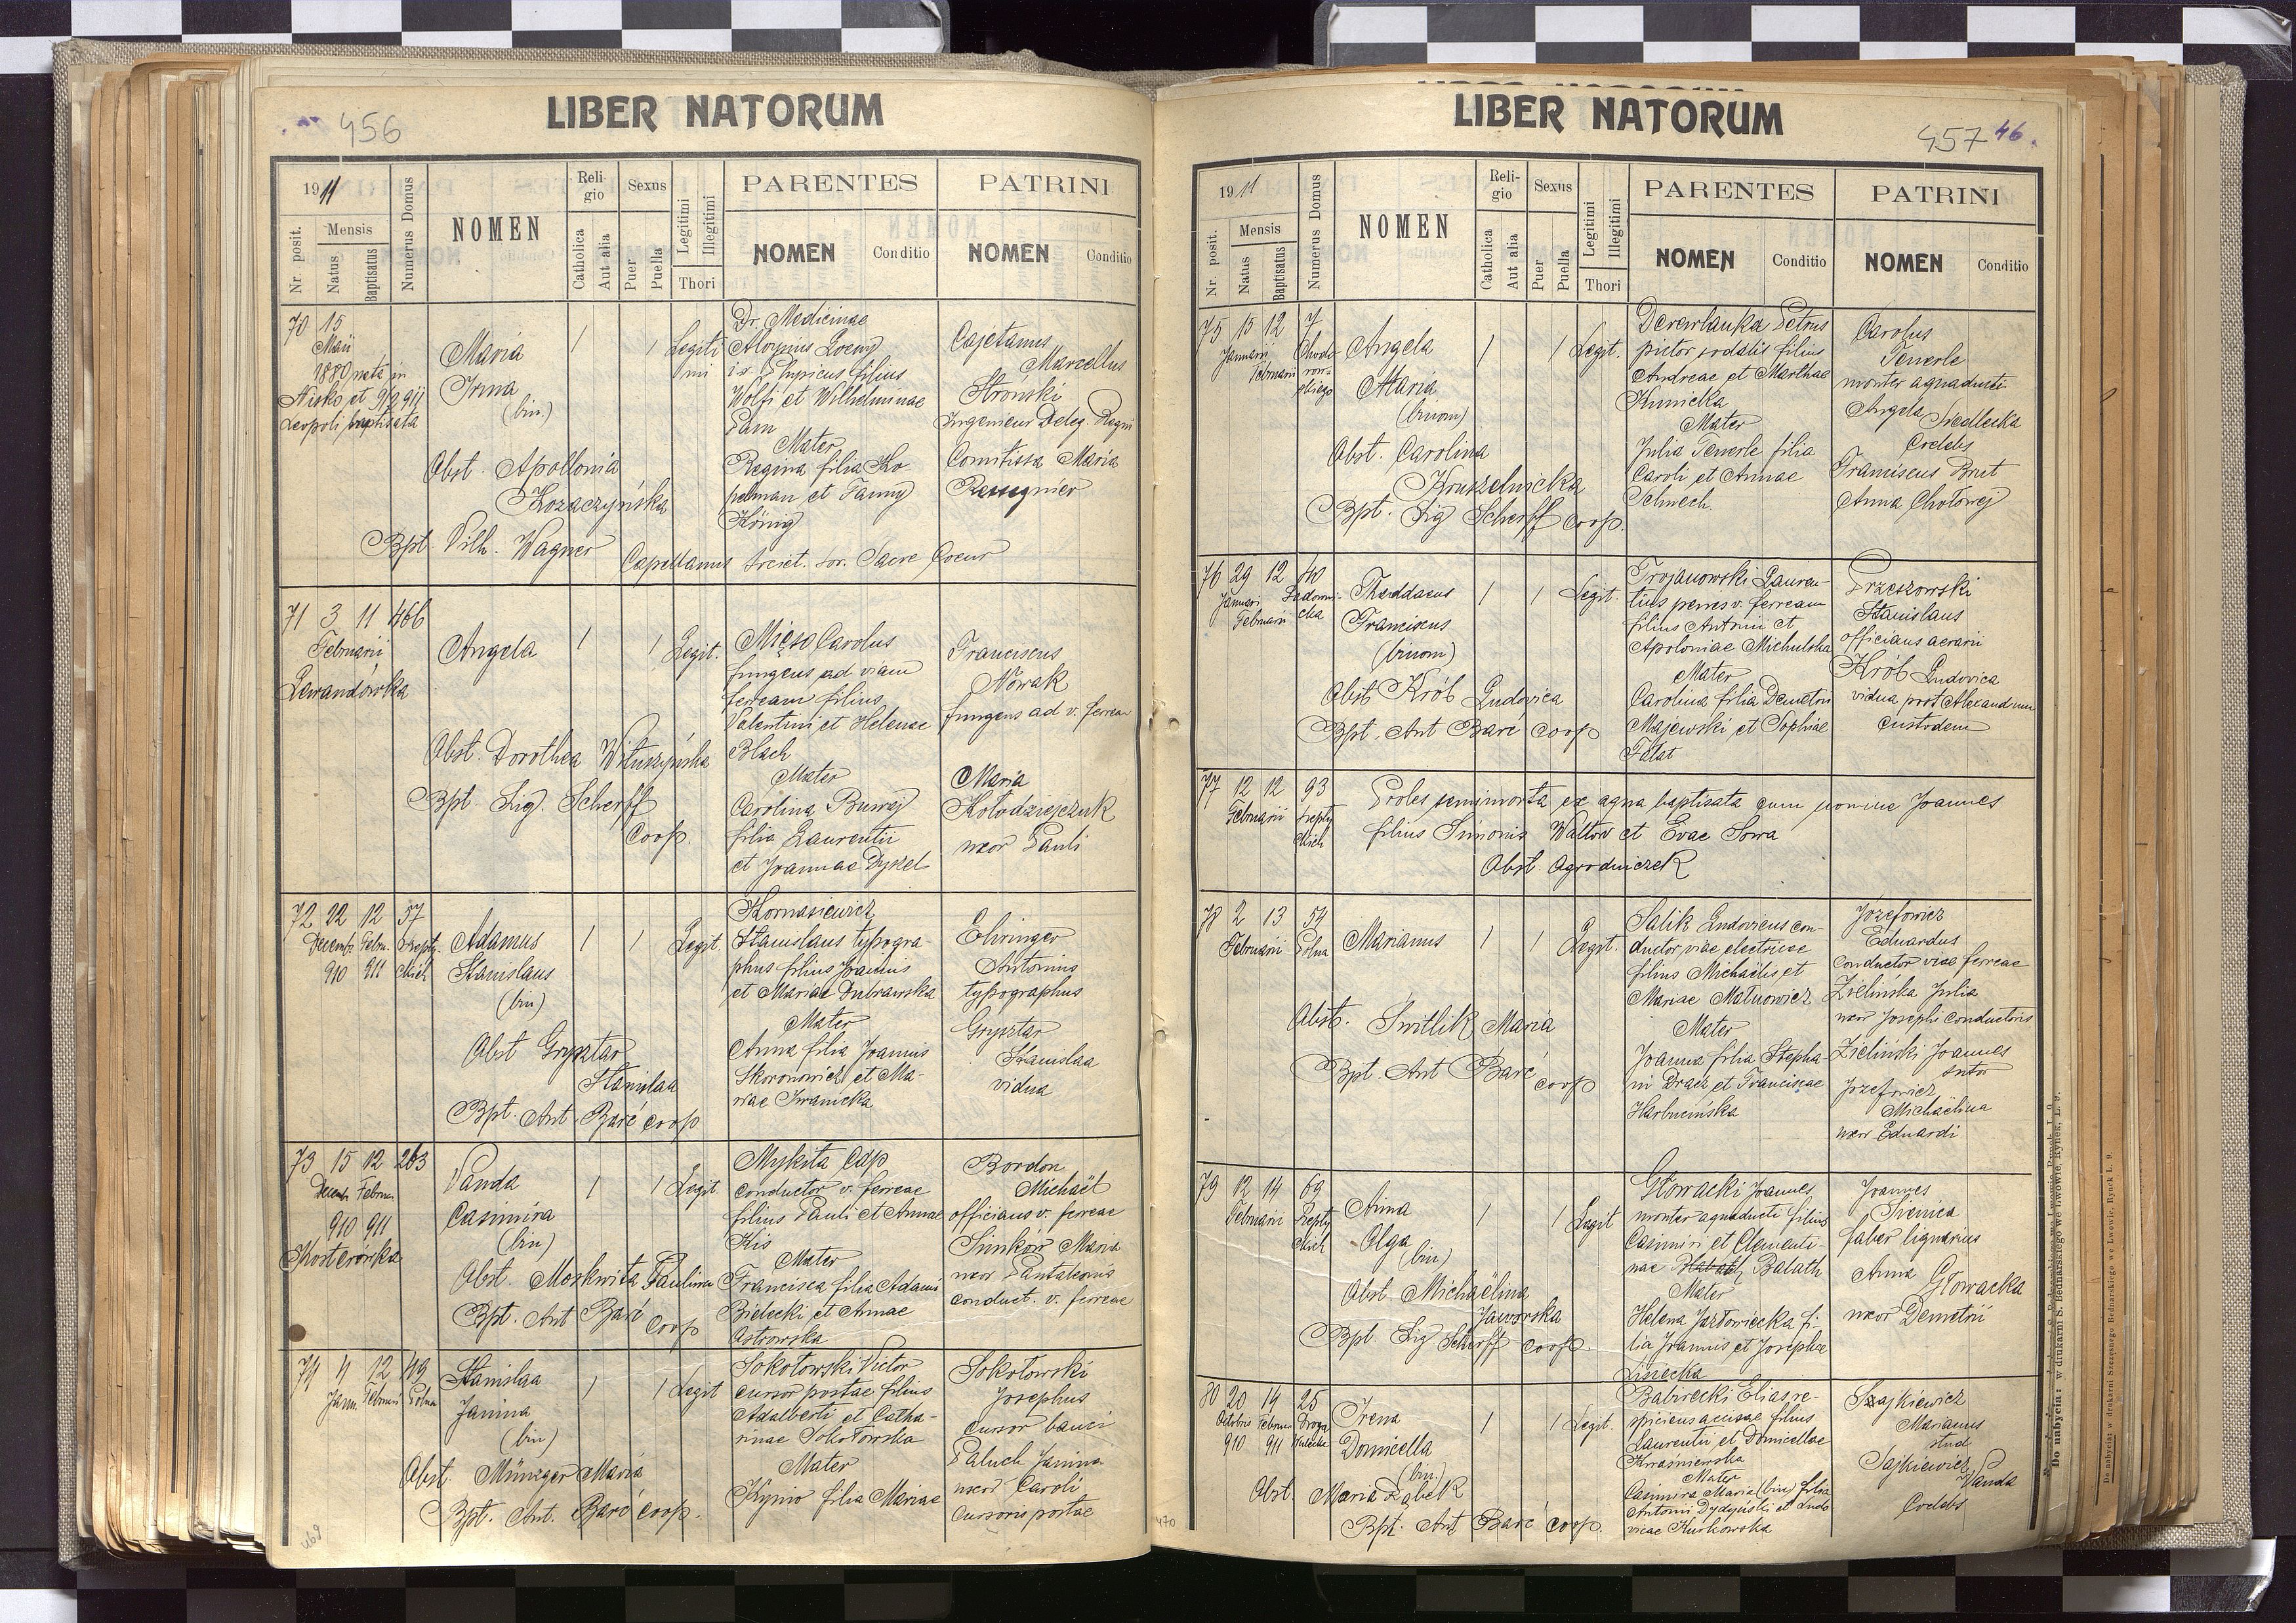 456
LIBER NATORUM
1911
Mensis
Nr. posit.
Natus
Baptisatus
Numerus Domus
NOMEN
Religio
Catholica
Aut alia
Sexus
Puer
Puella
Legitimi
Illegitimi
Thori
PARENTES
NOMEN
Conditio
PATRINI
NOMEN
Conditio
70 15
Maii
1880 nata in
Nisko et 9/2 911
Leopoli baptisata
Maria
Irma
(bin.)
1 1 Legiti
mi
Obst. Apollonia
Kozaczyńska
Bpt Vilh. Wagner Capellanus Sacre Coeur
Dr. Medicinae
Aloysius Loewy
Physicus filius
Wolfi et Wilhelminae
Pam
Mater
Regina filia Ko-
pelman et Fanny
König
Cajetanus
Marcellus
Stroński
Ingenieur Deleg. Regni
Comitissa Maria
Ressegnier
71 3 11 466
Februarii
Lewandówka
Angela
1 1 Legit.
Obst. Dorothea Wituszyńska
Bpt. Sig. Scherff
Coop.
Mięso Carolus
fungens ad viam
ferream filius
Valentini et Helenae
Blach
Mater
Carolina Buwaj
filia Laurentii
et Joannae Dyszel
Franciscus
Nowak
fungens ad v. ferream
Maria
Kołodziejczuk
uxor Pauli
72 22 12 57
Decemb. Febru. Szepty-
910 911 ckich
Adamus
Stanislaus
(bin)
1 1 Legit
Obst Grysztar
Stanislaa
Bpt. Ant Barć coop
Kornasiewicz
Stanislaus typogra-
phus filius Joannis
et Mariae Dubrawska
Mater
Anna filia Joannis
Skoronowicz et Ma-
riae Iwanicka
Ehringer
Antonius
typographus
Grysztar
Stanislaa
vidua
73 15 12 263
Decemb Februar
910 911
Kosterówka
Vanda
Casimira
(bin)
1 1 Legit.
Obst. Moskwita Paulina
Bpt. Ant Barć Coop
Mykita Cap
conductor v. ferreae
filius Pauli et Annae
Kis
Mater
Francisca filia Adami
Bielecki et Annae
Ostrowska
Bordon
Michaël
officians v. ferreae
Simków Maria
uxor Pantaleonis
conduct. v. ferreae
74 4 12 49
Janu Februari Polna
Stanislaa
Janina
(bin)
1 1 Legit
Obst. Münzger Maria
Bpt. Ant. Barć coop.
Sokołowski Victor
cursor postae filius
Adalberti et Catha-
rinae Sokołowska
Mater
Kynio filia Mariae
Sokołowski
Josephus
cursor banci
Paluch Janina
uxor Caroli
cursoris postae
469
LIBER NATORUM
457 46.
1911
Mensis
Nr. posit.
Natus
Baptisatus
Numerus Domus
NOMEN
Religio
Catholica
Aut alia
Sexus
Puer
Puella
Legitimi
Illegitimi
Thori
PARENTES
NOMEN
Conditio
PATRINI
NOMEN
Conditio
75 15 12 7
Januarii Februarii Chodo-
row-
skiego
Angela
Maria
(binom)
1 1 Legit.
Obst. Carolina
Kruszelnicka
Bpt. Sig Scherff Coop.
Derewlauka Petrus
pictor sodalis filius
Andreae et Marthae
Kunicka
Mater
Julia Teuerle filia
Caroli et Annae
Schnech
Carolus
Teuerle
monter aquaducti
Angela Siedlecka
Coelebs
Franciscus Brut
Anna Chołowej
76 29 12 40
Januari Februarii Sadowni-
cka
Thaddaeus
Franciscus
(binom)
1 1 Legit.
Obst Król Ludovica
Bpt. Ant Barć coop
Trojanowski Lauren-
tius penes v. ferream
filius Antonii et
Apoloniae Michulska
Mater
Carolina filia Demetrii
Majewski et Sophiae
Fatat
Przeszowski
Stanislaus
officians aerarii
Król Ludovica
vidua post Alexandrum
custodem
77 12 12 93
Februarii Szepty
ckich
Proles semimorta ex aqua baptisata cum nomine Joannes
filius Simonis Waltów et Evae Sowa
Obst Ogrodniczek
78 2 13 54
Februarii Polna
Marianus
1 1 Legit.
Obst. Switlik Maria
Bpt. Ant Barć coop
Salik Ludovicus con-
ductor viae electricae
filius Michaëlis et
Mariae Matuowicz
Mater
Joanna filia Stepha-
ni Dracz et Franciscae
Harbucińska
Józefowicz
Eduardus
conductor viae ferreae
Zielinska Julia
uxor Josephi conductoris
Zieliński Joannes
sutor
Józefowicz
Michaëlina
uxor Eduardi
79 12 14 69
Februarii Szepty
ckich
Anna
Olga
(bin)
1 1 Legit
Obst. Michaëlina
Jaworska
Bpt. Sig Scherff coop.
Głowacki Joannes
monter aquaducti filius
Casimiri et Clementi-
nae Balath
Mater
Helena Jazłowiecka fi-
lia Joannis et Josephae
Lisiecka
Joannes
Iwenica
faber lignarius
Anna Głowacka
uxor Demetrii
80 20 14 25
Octobris Februar Droga
910 911 Kulecka
Irena
Domicella
(bin.)
1 1 Legit.
Obst Maria Ząbek
Bpt. Ant Barć coop.
Babirecki Elias re-
spiciens accisae filius
Laurentii et Domicellae
Kwaśniewska
Mater
Casimira Maria (bin) filia
Antonii Dydyński et Ludo-
vicae Kurkowska
Szajkiewicz
Marianus
stud
Sajkiewicz Vanda
Coelebs
470
Do nabycia: w drukarni S. Bednarskiego we Lwowie, Rynek, L. 9.
Do nabycia: w drukarni Szczęsnego Bednarskiego we Lwowie. Rynek L. 9.